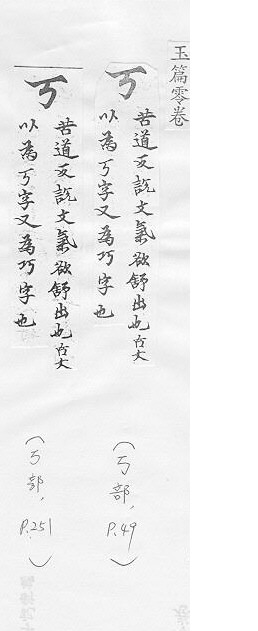 玉篇零卷
丂
苦道反說文氣欲舒出也古文
以為丂字又為巧字也
(丂部, P.49)
丂
苦道反說文氣欲舒出也古文
以為丂字又為巧字也
(丂部, P.251)